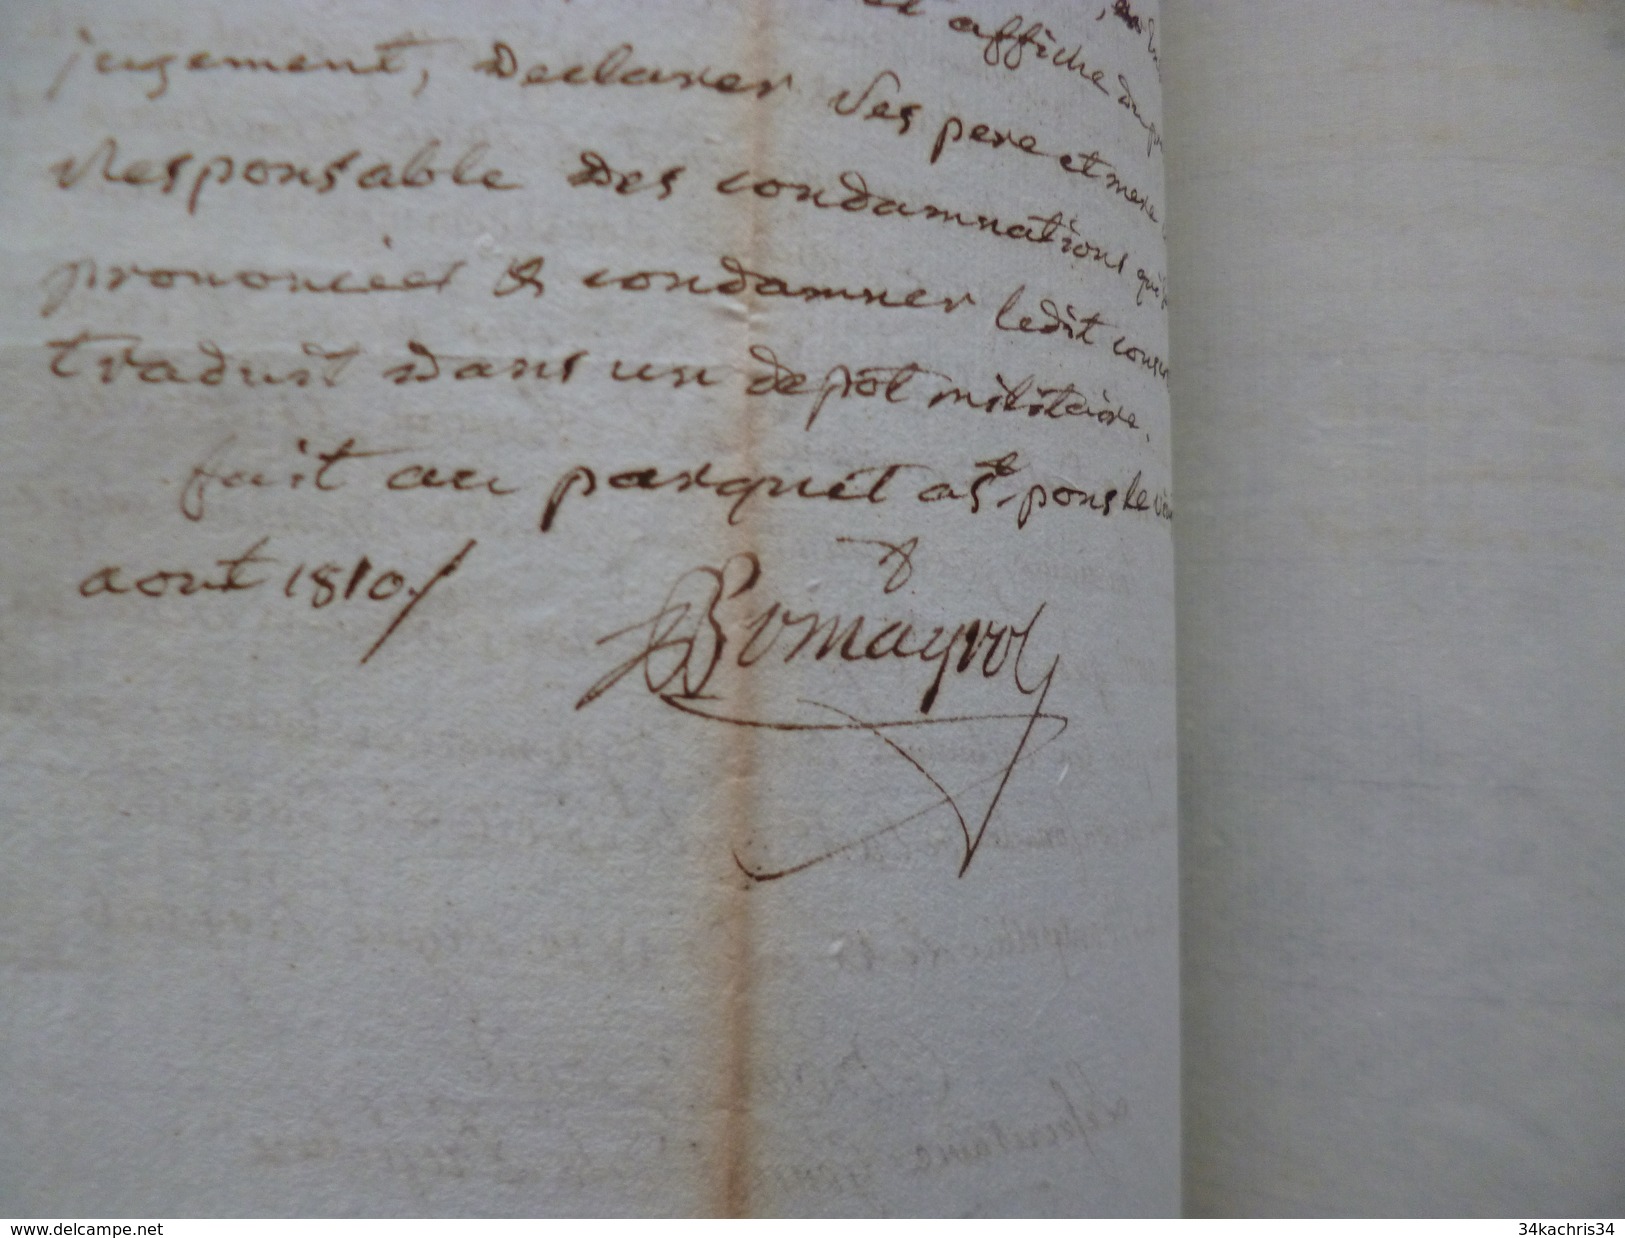 et affiche du
jugement, declarer Ses pere et mere
Responsable des condamnations qui
prononcées & condamner ledit
traduit dans un depot militaire.
fait au parquet a St. pons le
aout 1810./
Bomayrol
www.delcampe.net
34kachris34